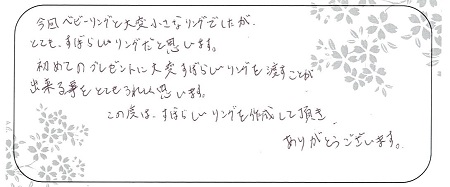 今回ベビーリングと大変小さなリングでしたが、
とても、すばらしいリングだと思います。
初めてのプレゼントに大変すばらしいリングを渡すことが
出来る事をとてもうれしく思います。
この度は、すばらしいリングを作成して頂き
ありがとうございます。